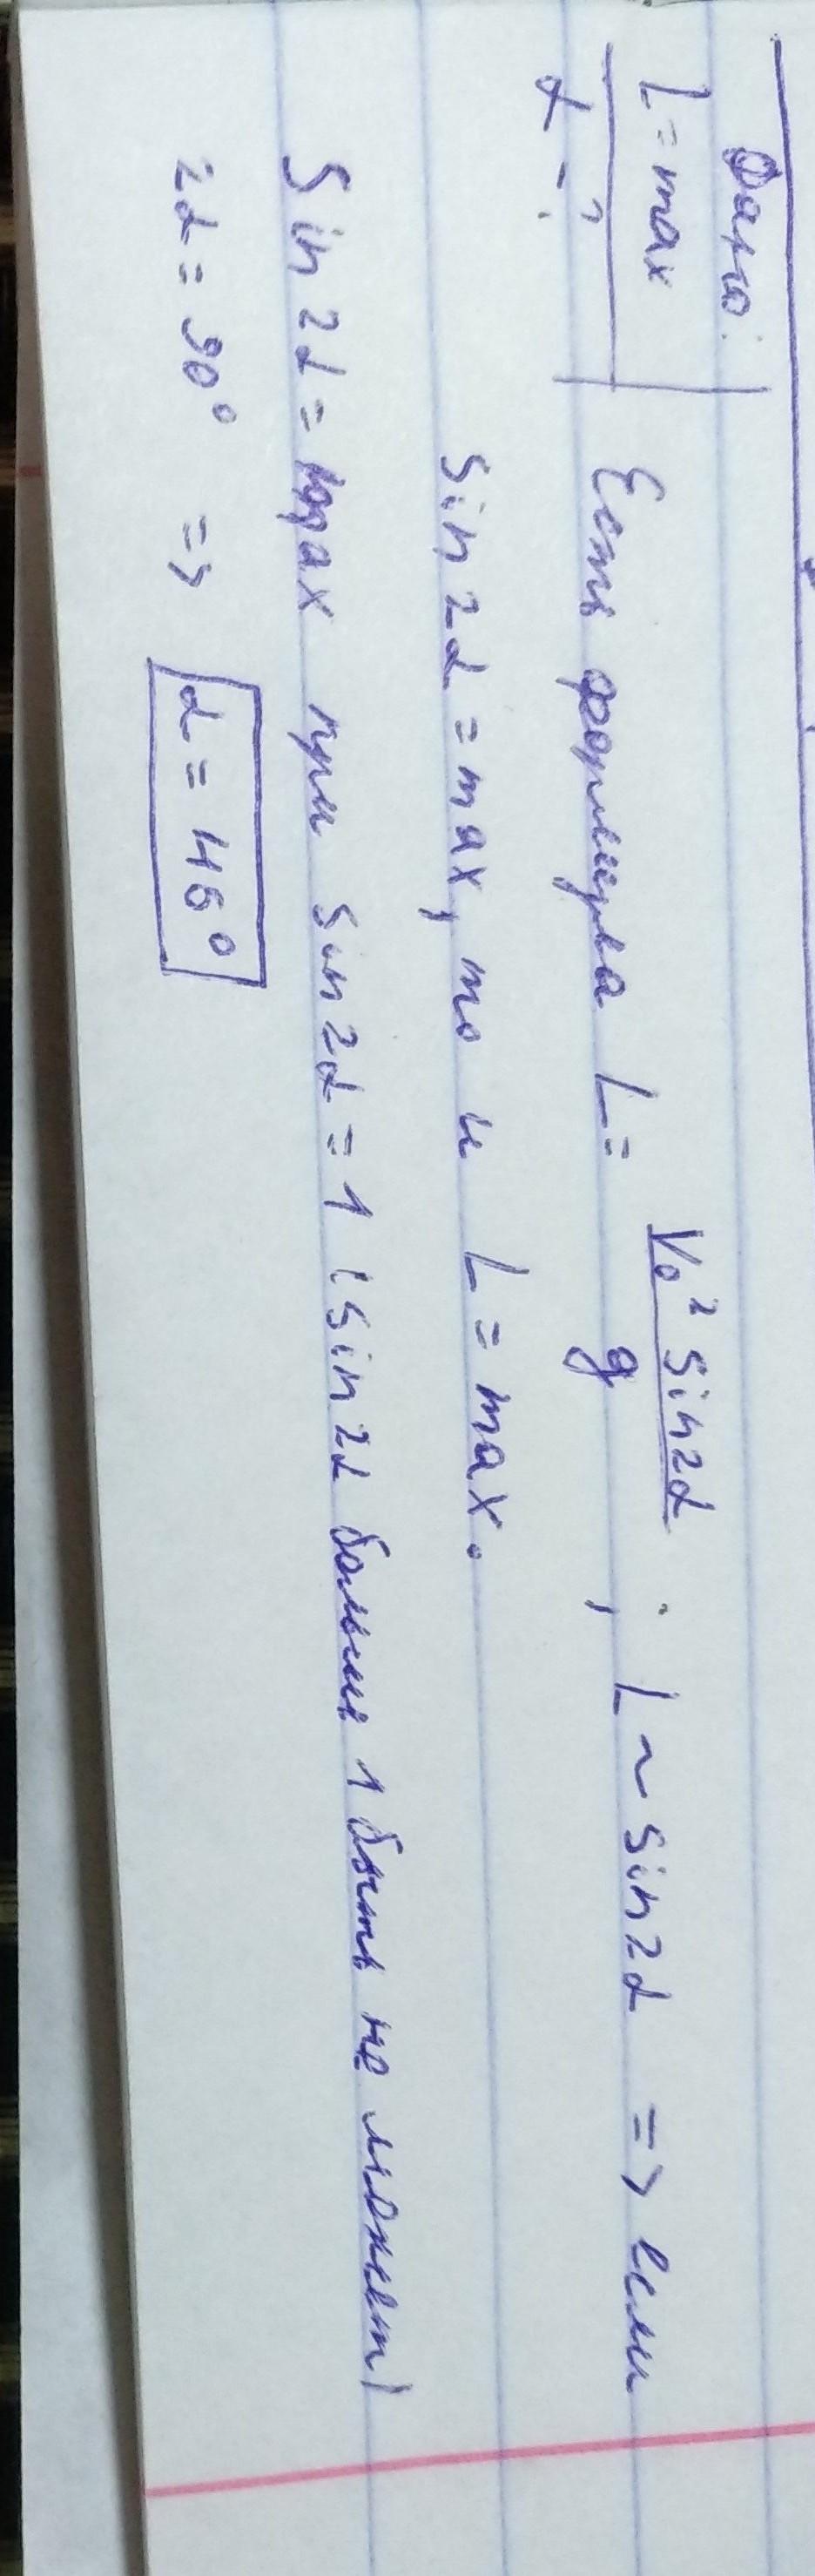 Дано:
L = max
α - ?
Есть формула L = V₀² sin2α / g ; L ~ sin2α => если
sin2α = max, то и L = max.
Sin2α = max при sin2α = 1 (sin2α больше 1 быть не может)
2α = 90° => α = 45°